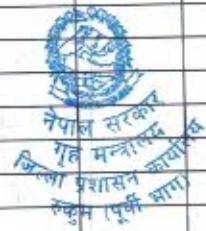 नेपाल सरकार
गृह मन्त्रालय
जिल्ला प्रशासन कार्यालय
रुकुम (पूर्वी भाग)